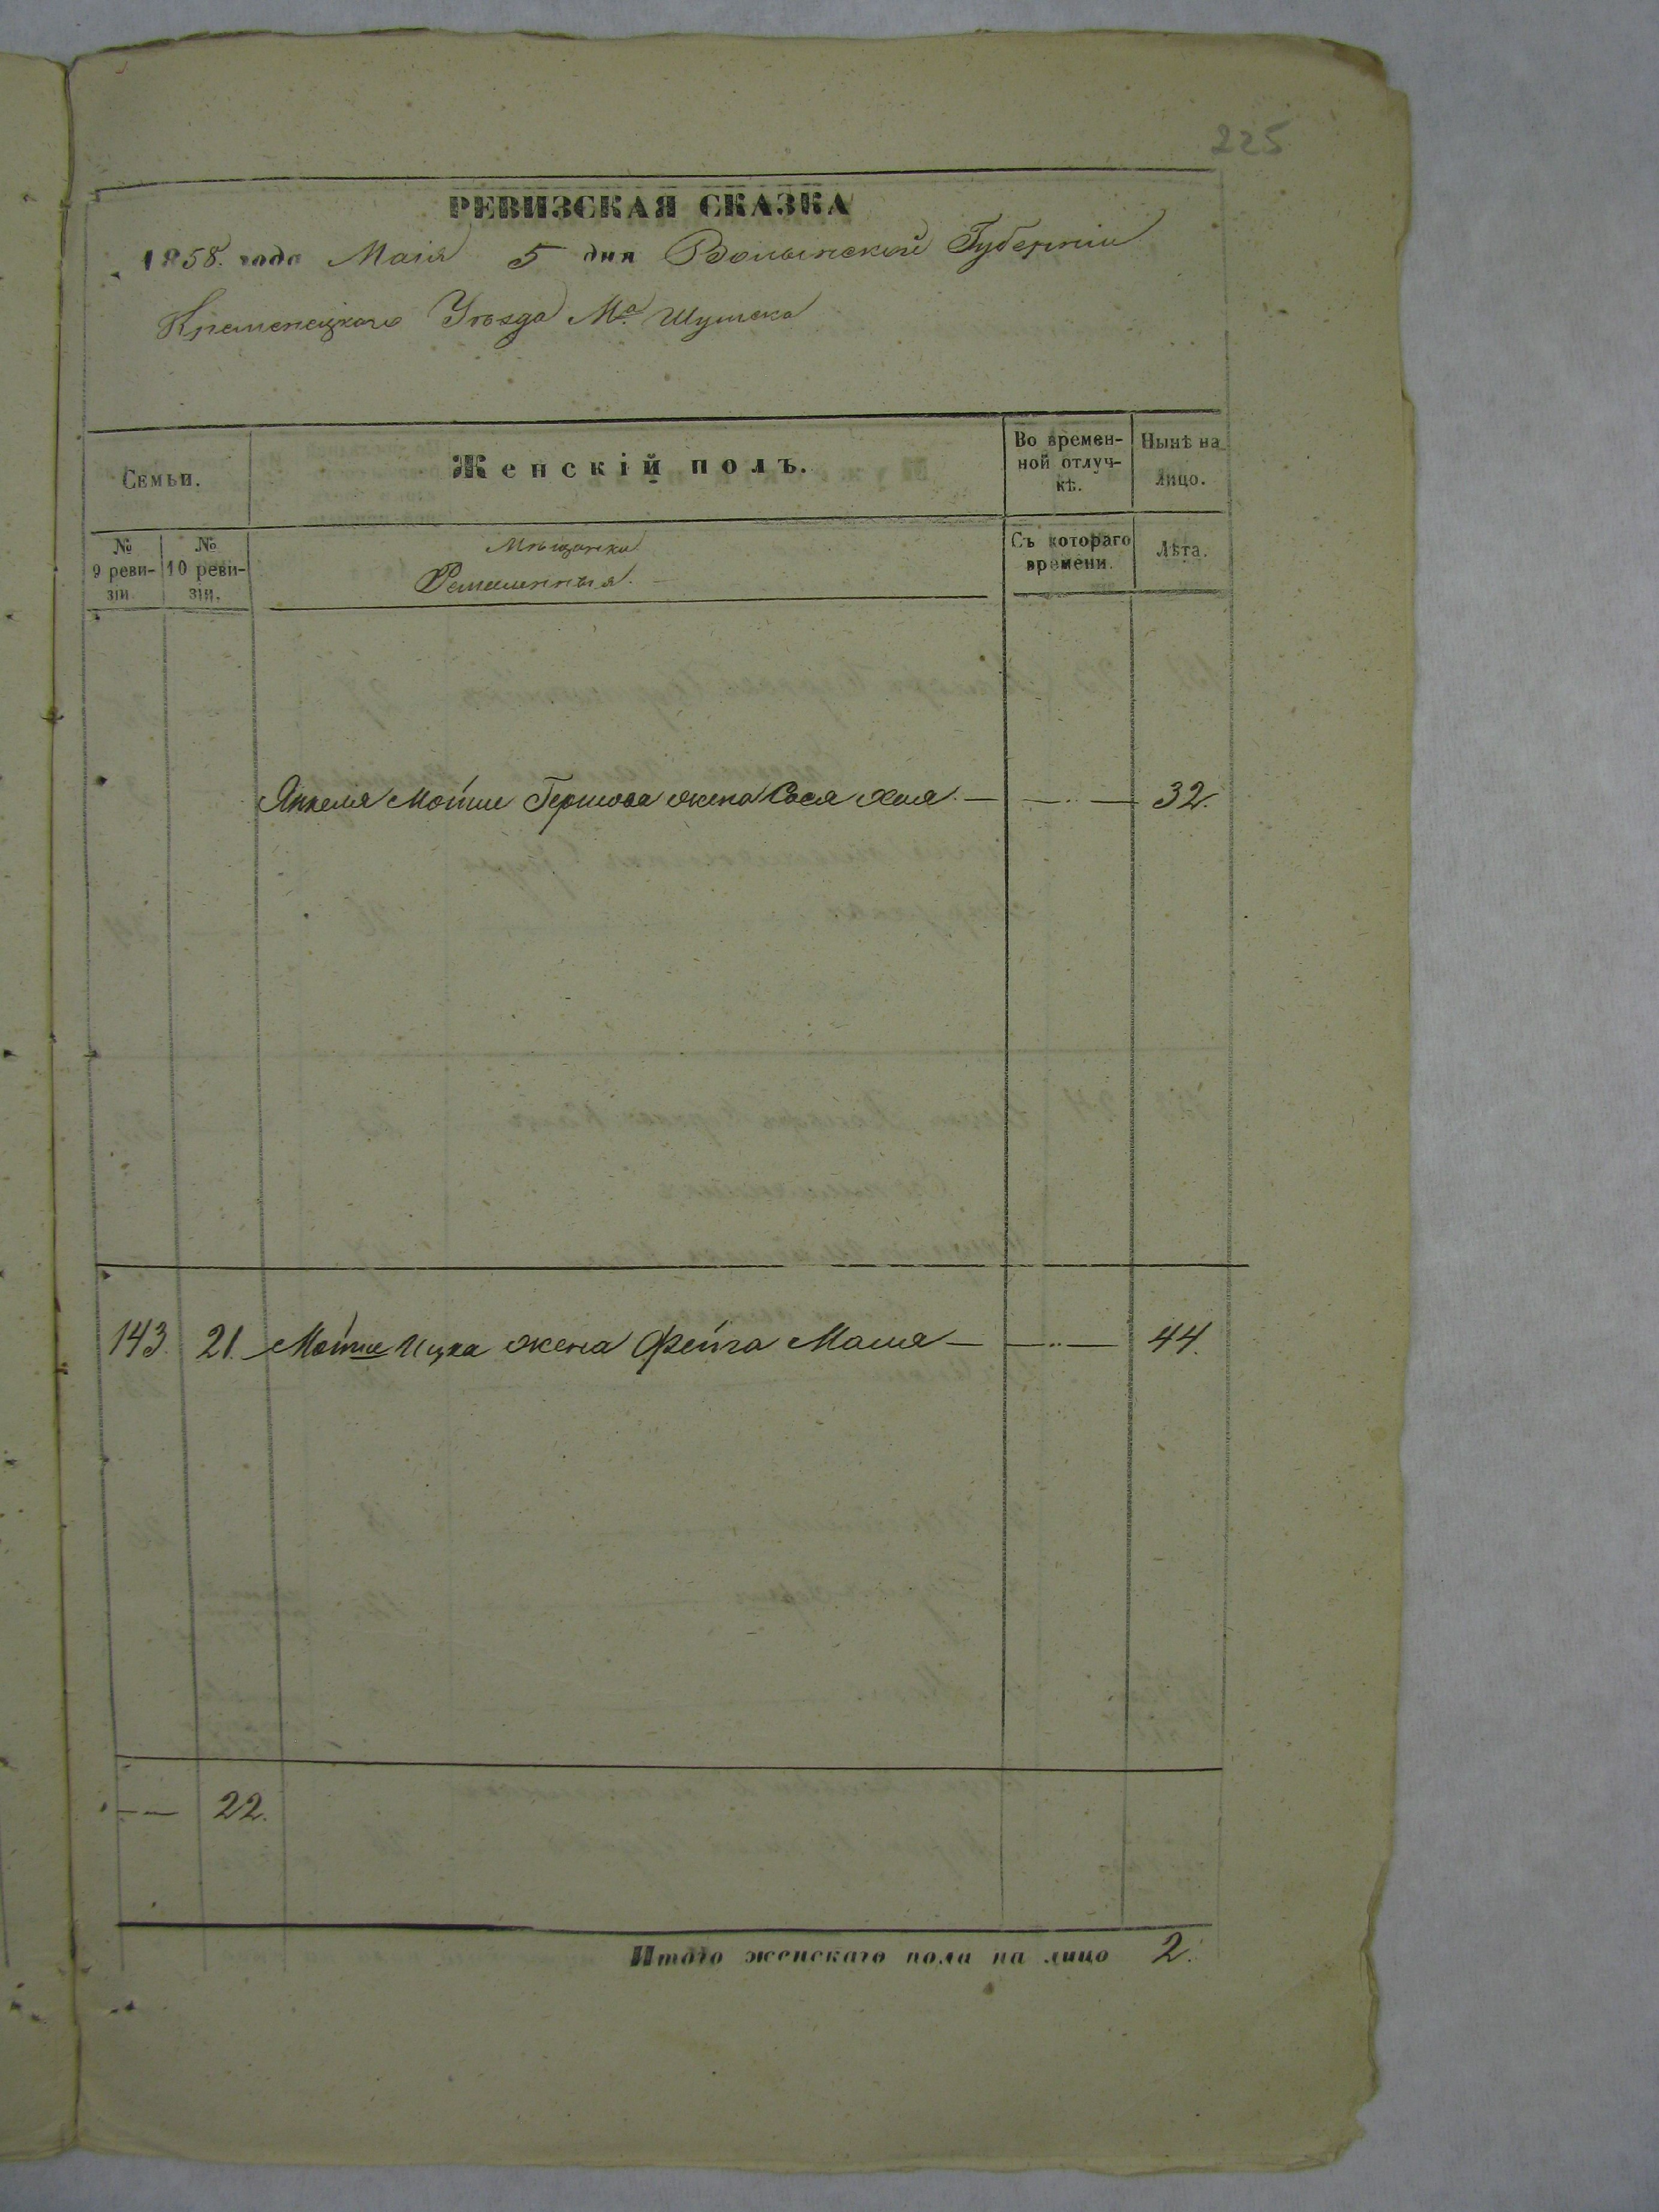 225
РЕВИЗСКАЯ СКАЗКА
1858. года Маія 5 дня Волынской Губерніи
Кременецкаго Уѣзда Мᵃ. Шумска
Семьи.
Женскій полъ.
Во времен-
ной отлуч-
кѣ.
Нынѣ на
лицо.
№
9 реви-
зіи
№
10 реви-
зіи.
Мѣщанки
Съ котораго
времени.
Лѣта.
Янкеля Мошки Гершова жена Сося Хая — — 32.
143. 21. Мошки Ицка жена Фейга Маля — — 44.
— 22.
Итого женскаго пола на лицо 2.